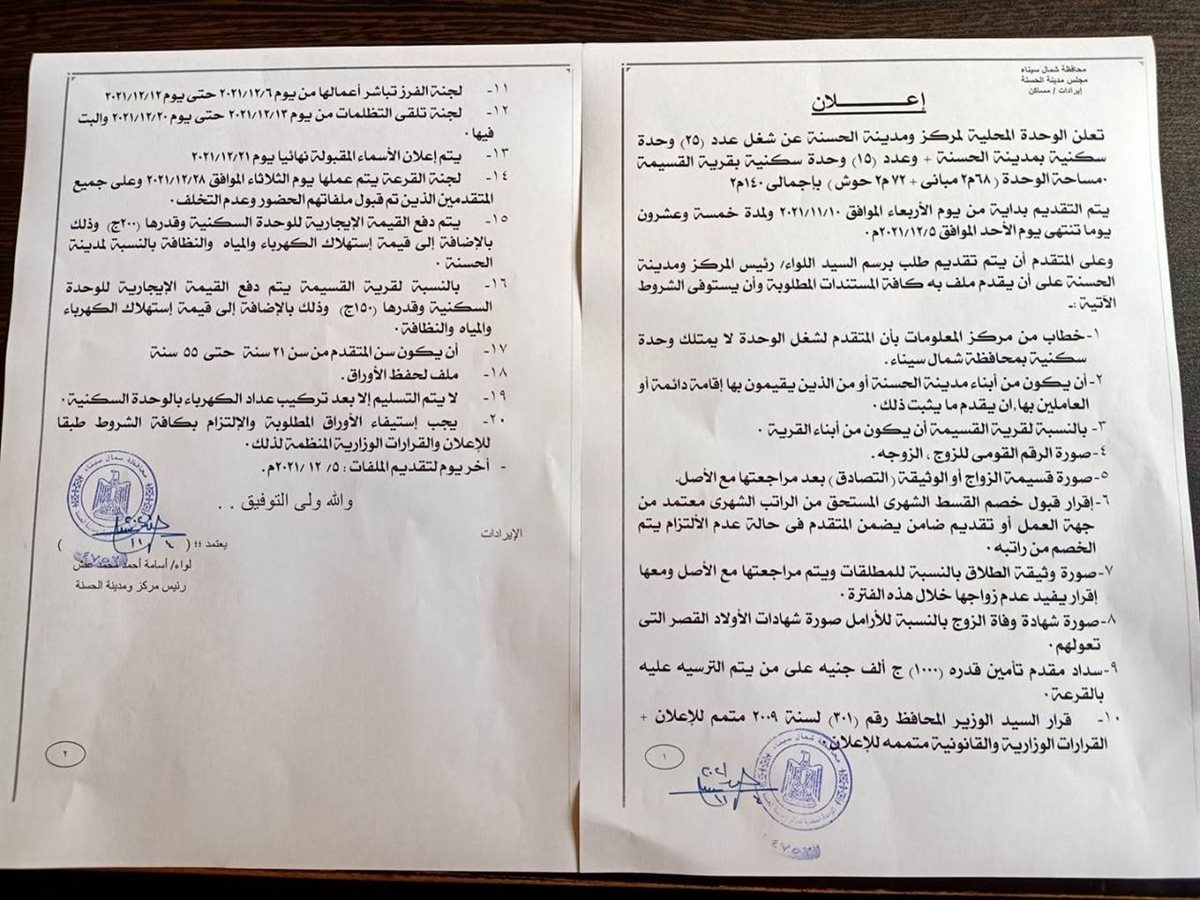 محافظة شمال سيناء
مجلس مدينة الحسنة
إيرادات / مساكن
إعـــلان
تعلن الوحدة المحلية لمركز ومدينة الحسنة عن شغل عدد (٢٥) وحدة
سكنية بمدينة الحسنة + وعدد (١٥) وحدة سكنية بقرية القسيمة
٠مساحة الوحدة (٦٨م٢ مبانى + ٧٢ م٢ حوش ) بإجمالى ١٤٠م٢
يتم التقديم بداية من يوم الأربعاء الموافق ٢٠٢١/١١/١٠ ولمدة خمسة وعشرون
يوما تنتهى يوم الأحد الموافق ٢٠٢١/١٢/٥م٠
وعلى المتقدم أن يتم تقديم طلب برسم السيد اللواء/ رئيس المركز ومدينة
الحسنة على أن يقدم ملف به كافة المستندات المطلوبة وأن يستوفى الشروط
الأتية :ـ
١-خطاب من مركز المعلومات بأن المتقدم لشغل الوحدة لا يمتلك وحدة
سكنية بمحافظة شمال سيناء.
٢-أن يكون من أبناء مدينة الحسنة أو من الذين يقيمون بها إقامة دائمة أو
العاملين بها,ان يقدم ما يثبت ذلك٠
٣- بالنسبة لقرية القسيمة أن يكون من أبناء القرية ٠
٤-صورة الرقم القومى للزوج ، الزوجه.
٥-صورة قسيمة الزواج أو الوثيقة (التصادق) بعد مراجعتها مع الأصل.
٦-إقرار قبول خصم القسط الشهرى المستحق من الراتب الشهرى معتمد من
جهة العمل أو تقديم ضامن يضمن المتقدم فى حالة عدم الألتزام يتم
الخصم من راتبه٠
٧-صورة وثيقة الطلاق بالنسبة للمطلقات ويتم مراجعتها مع الأصل ومعها
إقرار يفيد عدم زواجها خلال هذه الفترة٠
٨-صورة شهادة وفاة الزوج بالنسبة للأرامل صورة شهادات الأولاد القصر التى
تعولهم٠
٩-سداد مقدم تأمين قدره (١٠٠٠) ج ألف جنيه على من يتم الترسيه عليه
بالقرعة٠
١٠- قرار السيد الوزير المحافظ رقم (٣٠١) لسنة ٢٠٠٩ متمم للإعلان +
القرارات الوزارية والقانونية متممه للإعلان
١
١١- لجنة الفرز تباشر أعمالها من يوم ٢٠٢١/١٢/٦ حتى يوم ٢٠٢١/١٢/١٢
١٢- لجنة تلقى التظلمات من يوم ٢٠٢١/١٢/١٣ حتى يوم ٢٠٢١/١٢/٢٠ والبت
فيها٠
١٣- يتم إعلان الأسماء المقبولة نهائيا يوم ٢٠٢١/١٢/٢١
١٤- لجنة القرعة يتم عملها يوم الثلاثاء الموافق ٢٠٢١/١٢/٢٨ وعلى جميع
المتقدمين الذين تم قبول ملفاتهم الحضور وعدم التخلف٠
١٥- يتم دفع القيمة الإيجارية للوحدة السكنية وقدرها (٢٠٠ج) وذلك
بالإضافة إلى قيمة إستهلاك الكهرباء والمياه والنظافة بالنسبة لمدينة
الحسنة ٠
١٦- بالنسبة لقرية القسيمة يتم دفع القيمة الإيجارية للوحدة
السكنية وقدرها (١٥٠ج) وذلك بالإضافة إلى قيمة إستهلاك الكهرباء
والمياه والنظافة٠
١٧- أن يكون سن المتقدم من سن ٢١ سنة حتى ٥٥ سنة
١٨- ملف لحفظ الأوراق.
١٩- لا يتم التسليم إلا بعد تركيب عداد الكهرباء بالوحدة السكنية٠
٢٠- يجب إستيفاء الأوراق المطلوبة والإلتزام بكافة الشروط طبقا
للإعلان والقرارات الوزارية المنظمة لذلك٠
- أخر يوم لتقديم الملفات : ٢٠٢١/ ١٢ /٥م.
والله ولى التوفيق . .
الإيرادات
يعتمد ؛؛ ( )
لواء/ أسامة أحمد محمد
رئيس مركز ومدينة الحسنة
محافظة شمال سيناء
٢